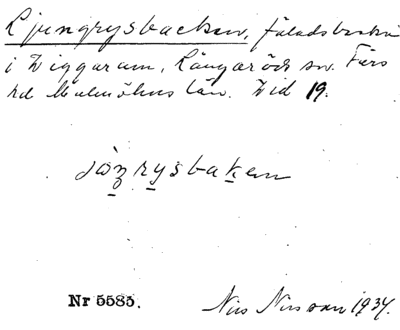 Ljungrysbacken, fäladsbacke
i Diggaram, Långaröds sn. Färs
hd Malmöhus län. Sid 19.
jöŋrysbaken
Nr 5585.
Nils Nilsson 1934.